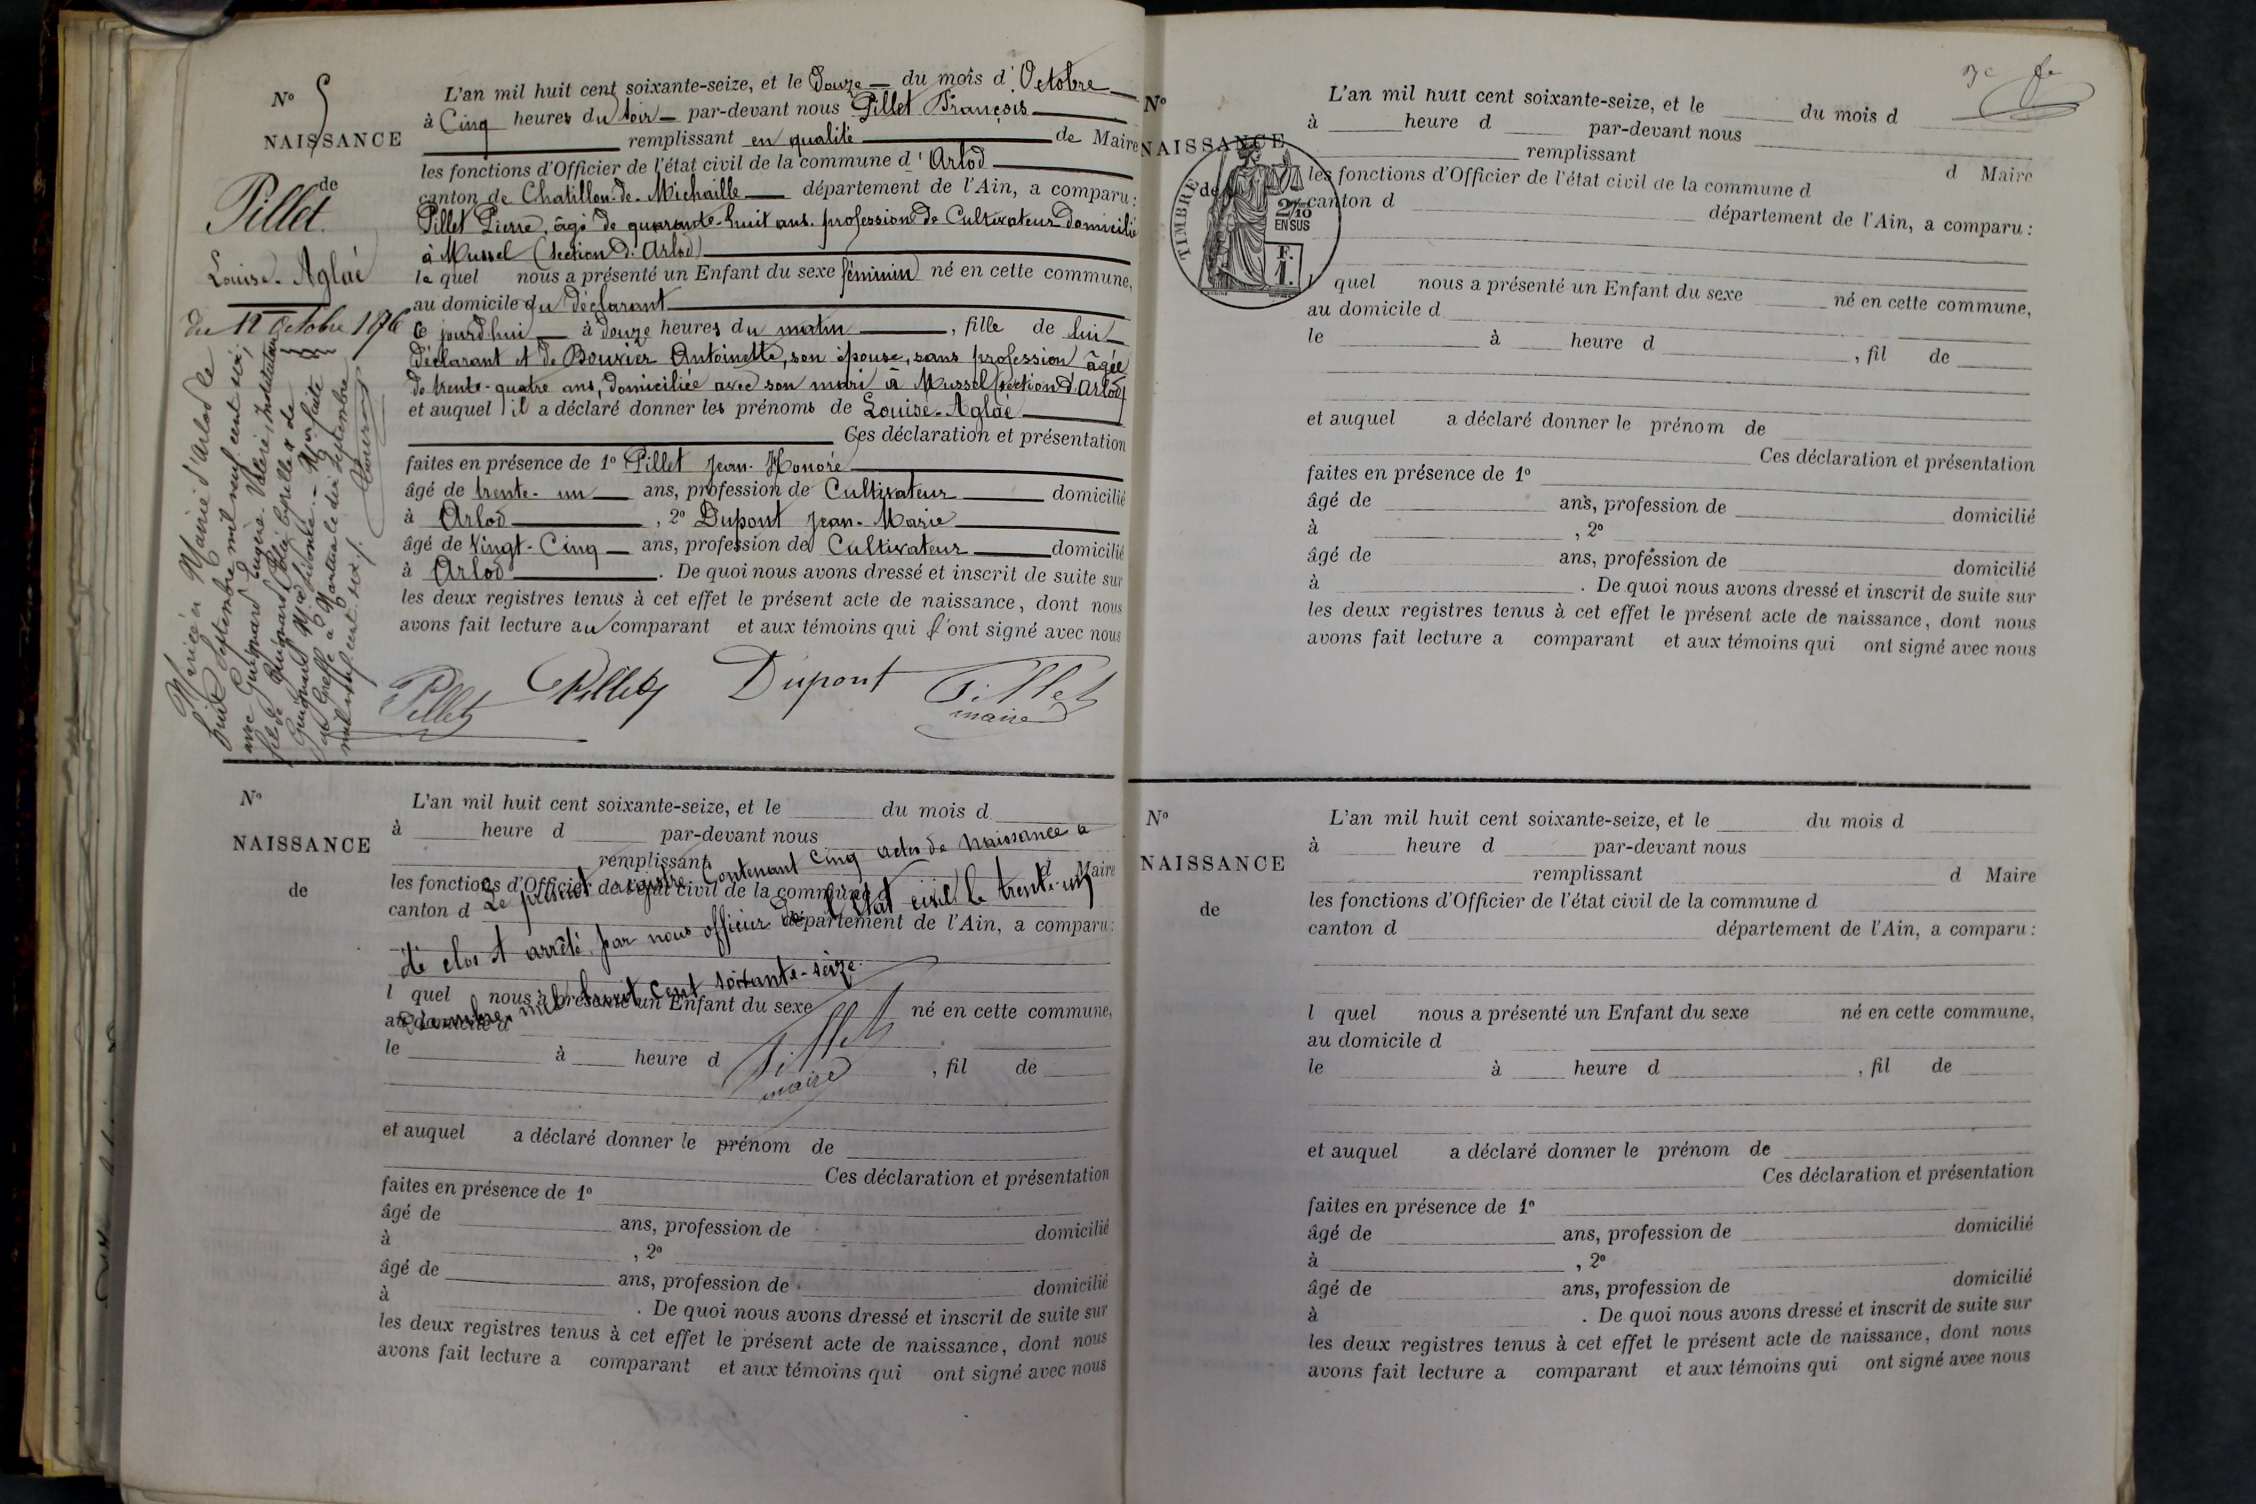 N° 5
NAISSANCE
de
Pillet
Louise-Aglaé
du 12 Octobre 1876
L'an mil huit cent soixante-seize, et le Douze du mois d'Octobre
à Cinq heures du soir par-devant nous Pillet François
remplissant en qualité de Maire
les fonctions d'Officier de l'état civil de la commune d'Arlod
canton de Chatillon-de-Michaille département de l'Ain, a comparu :
Pillet Pierre, âgé de quarante-huit ans. profession de Cultivateur domicilié
à Mussel (section d'Arlod)
lequel nous a présenté un Enfant du sexe féminin né en cette commune,
au domicile du déclarant
ce jourd'hui à douze heures du matin, fille de lui
déclarant et de Bouvier Antoinette, son épouse, sans profession âgée
de trente-quatre ans, domiciliée avec son mari à Mussel (section d'Arlod)
et auquel il a déclaré donner les prénoms de Louise-Aglaé
Ces déclaration et présentation
faites en présence de 1° Pillet Jean-Honoré
âgé de trente-un ans, profession de Cultivateur domicilié
à Arlod, 2° Dupont Jean-Marie
âgé de Vingt-Cinq ans, profession de Cultivateur domicilié
à Arlod. De quoi nous avons dressé et inscrit de suite sur
les deux registres tenus à cet effet le présent acte de naissance, dont nous
avons fait lecture au comparant et aux témoins qui l'ont signé avec nous
Pillet Pillet Dupont Pillet
maire
Mariée à Mairie d'Arlod le
huit Septembre mil neuf cent six,
avec Guignard Eugène Valérie, Instituteur
fils de Guignard et de
Guignard
au Greffe à Nantua le dix Septembre
mil neuf cent six.
N°
NAISSANCE
de
L'an mil huit cent soixante-seize, et le du mois d
à heure d par-devant nous
remplissant d Maire
les fonctions d'Officier de l'état civil de la commune d
canton d département de l'Ain, a comparu :
l quel nous a présenté un Enfant du sexe né en cette commune,
au domicile d
le à heure d , fil de
et auquel a déclaré donner le prénom de
Ces déclaration et présentation
faites en présence de 1°
âgé de ans, profession de domicilié
à , 2°
âgé de ans, profession de domicilié
à . De quoi nous avons dressé et inscrit de suite sur
les deux registres tenus à cet effet le présent acte de naissance, dont nous
avons fait lecture a comparant et aux témoins qui ont signé avec nous
Le présent registre Contenant Cinq actes de Naissance a
été clos et arrêté par nous officier de l'état civil le trente-un
Décembre mil huit cent soixante-seize.
Pillet
maire
N°
NAISSANCE
de
TIMBRE
2/10
EN SUS
F.
1.
L'an mil huit cent soixante-seize, et le du mois d
à heure d par-devant nous
remplissant d Maire
les fonctions d'Officier de l'état civil de la commune d
canton d département de l'Ain, a comparu :
l quel nous a présenté un Enfant du sexe né en cette commune,
au domicile d
le à heure d , fil de
et auquel a déclaré donner le prénom de
Ces déclaration et présentation
faites en présence de 1°
âgé de ans, profession de domicilié
à , 2°
âgé de ans, profession de domicilié
à . De quoi nous avons dressé et inscrit de suite sur
les deux registres tenus à cet effet le présent acte de naissance, dont nous
avons fait lecture a comparant et aux témoins qui ont signé avec nous
N°
NAISSANCE
de
L'an mil huit cent soixante-seize, et le du mois d
à heure d par-devant nous
remplissant d Maire
les fonctions d'Officier de l'état civil de la commune d
canton d département de l'Ain, a comparu :
l quel nous a présenté un Enfant du sexe né en cette commune,
au domicile d
le à heure d , fil de
et auquel a déclaré donner le prénom de
Ces déclaration et présentation
faites en présence de 1°
âgé de ans, profession de domicilié
à , 2°
âgé de ans, profession de domicilié
à . De quoi nous avons dressé et inscrit de suite sur
les deux registres tenus à cet effet le présent acte de naissance, dont nous
avons fait lecture a comparant et aux témoins qui ont signé avec nous